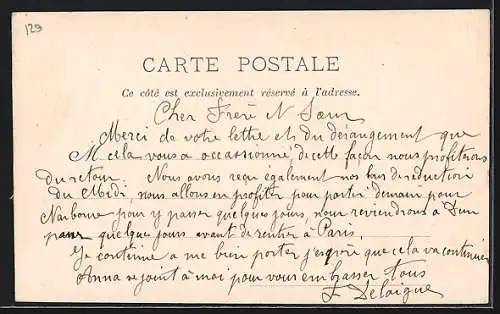 129
CARTE POSTALE
Ce côté est exclusivement réservé à l'adresse.
Cher Frère Sœur
Merci de votre lettre et du dérangement que
cela vous a occassionné, de cette façon nous profiterons
du retour. Nous avons reçu également nos de réduction
du Midi, nous allons en profiter pour partir demain pour
Narbonne pour y passer quelques jours, nour reviendrons à
passer quelques jours avant de rentrer à Paris.
Je continue a me bien porter j'espère que cela va continuer
Anna se joint à moi pour vous embrasser tous
Delaigue